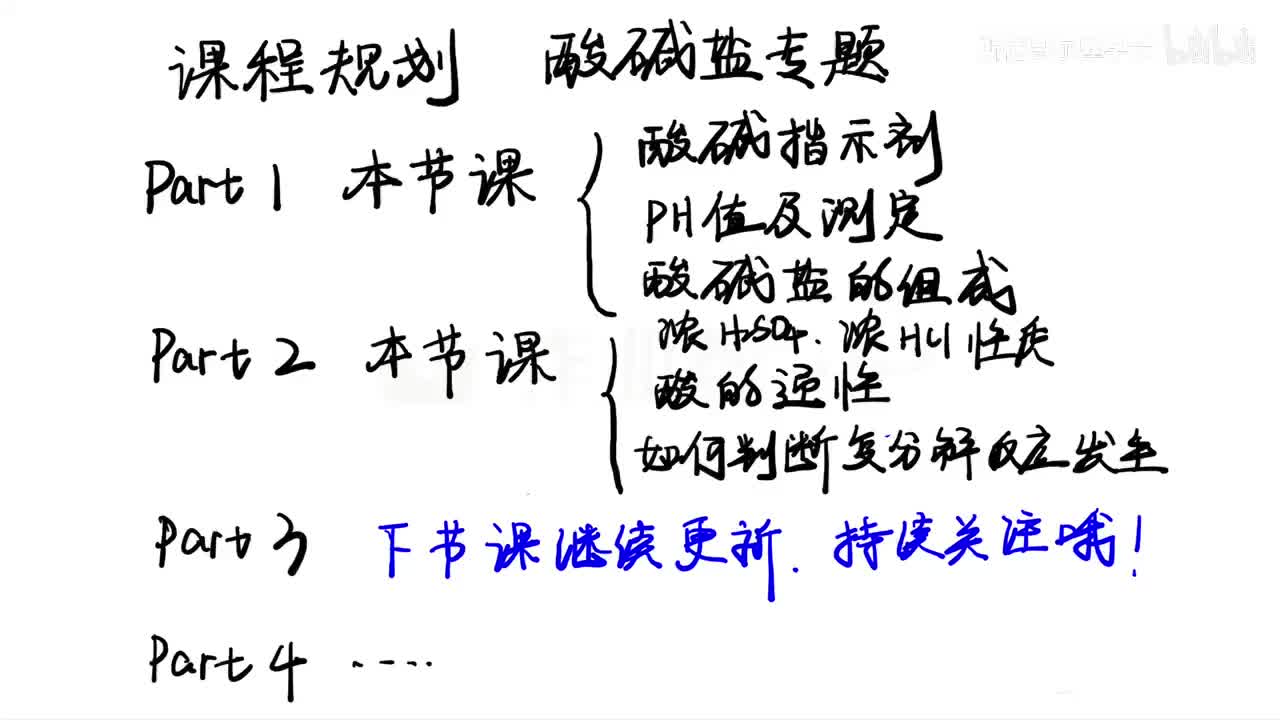 课程规划 酸碱盐专题
酸碱指示剂
Part 1 本节课
PH值及测定
酸碱盐的组成
浓H2SO4.浓HCl性质
Part 2 本节课
酸的通性
如何判断复分解反应发生
Part 3 下节课继续更新.持续关注哦!
Part 4 .....
bilibili